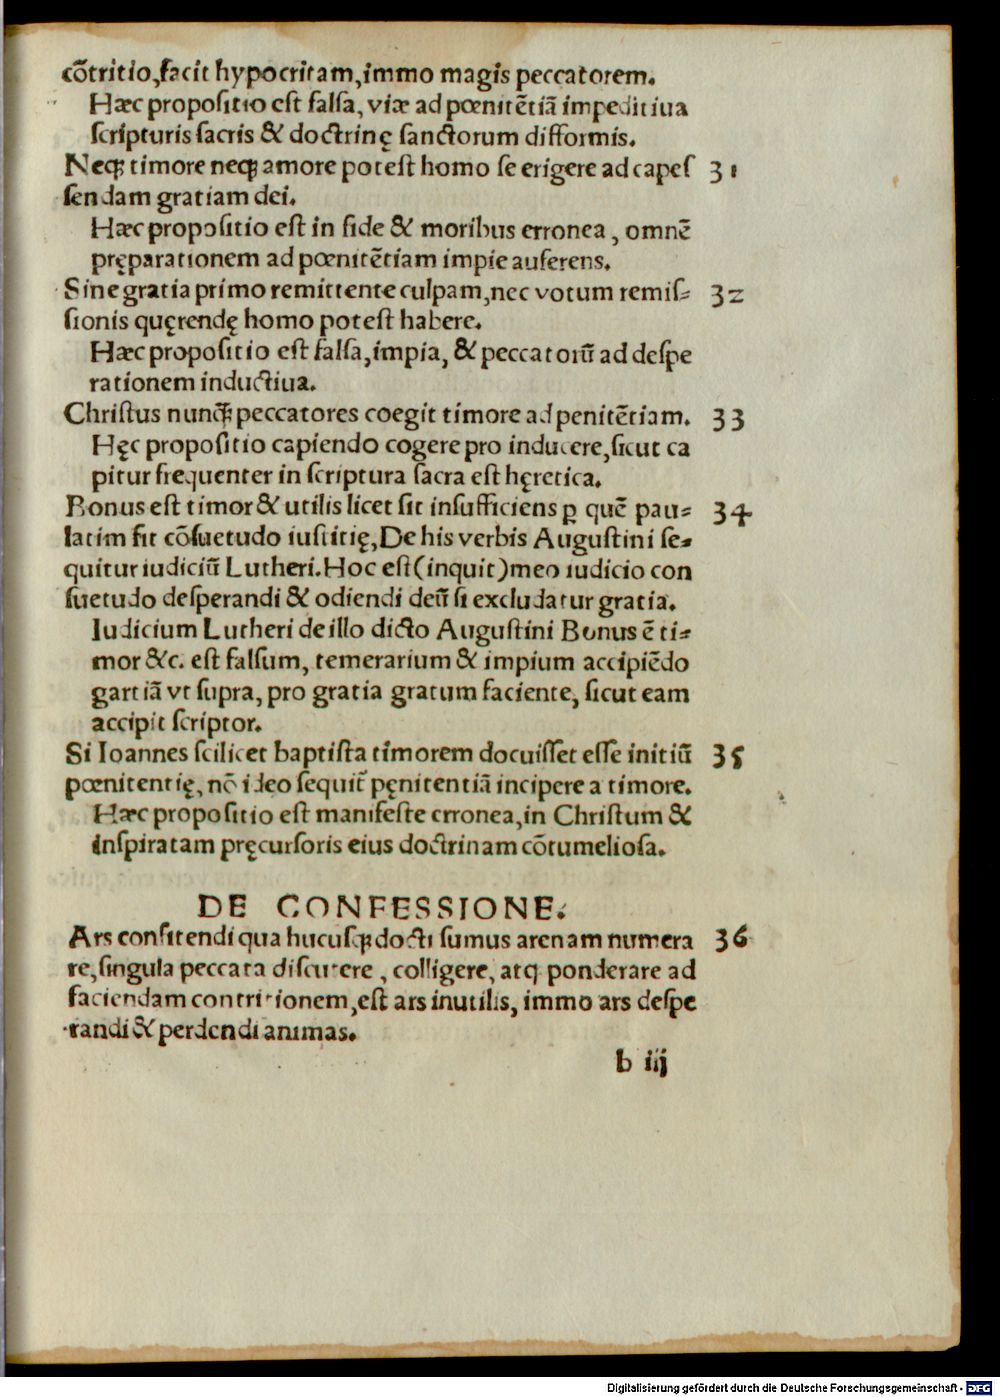 cōtritio,facit hypocritam,immo magis peccatorem.
Hæc propositio est falsa, viæ ad pœnitētiā impeditiua
scripturis sacris & doctrinę sanctorum difformis.
Neqꝫ timore neqꝫ amore potest homo se erigere ad capes 31
sendam gratiam dei.
Hæc propositio est in fide & moribus erronea, omnē
pręparationem ad pœnitētiam impie auferens.
Sine gratia primo remittente culpam,nec votum remis= 32
sionis quęrendę homo potest habere.
Hæc propositio est falsa,impia, & peccatorū ad despe
rationem inductiua.
Christus nunqꝫ peccatores coegit timore ad penitētiam. 33
Hęc propositio capiendo cogere pro inducere,sicut ca
pitur frequenter in scriptura sacra est hęretica.
Bonus est timor & utilis licet sit insufficiens ꝑ quē pau= 34
latim fit cōsuetudo iustitię,De his verbis Augustini se=
quitur iudiciū Lutheri.Hoc est(inquit)meo iudicio con
suetudo desperandi & odiendi deū si excludatur gratia.
Iudicium Lutheri de illo dicto Augustini Bonus ē ti=
mor &c. est falsum, temerarium & impium accipiēdo
gartiā vt supra, pro gratia gratum faciente, sicut eam
accipit scriptor.
Si Ioannes scilicet baptista timorem docuisset esse initiū 35
pœnitentię, nō ideo sequit᷑ pęnitentiā incipere a timore.
Hæc propositio est manifeste erronea,in Christum &
inspiratam pręcursoris eius doctrinam cōtumeliosa.
DE CONFESSIONE.
Ars confitendi qua hucusqꝫ docti sumus arenam numera 36
re,singula peccata discutere, colligere, atqꝫ ponderare ad
faciendam contritionem,est ars inutilis, immo ars despe
randi & perdendi animas.
b iij
Digitalisierung gefördert durch die Deutsche Forschungsgemeinschaft - DFG